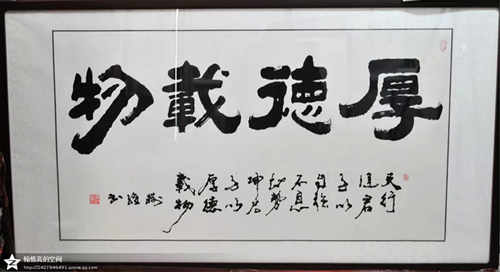 厚德載物
天行
健君
子以
自强
不息
地勢
坤君
子以
厚德
載物
翰情真的空间
http://2427846491.qzone.qq.com